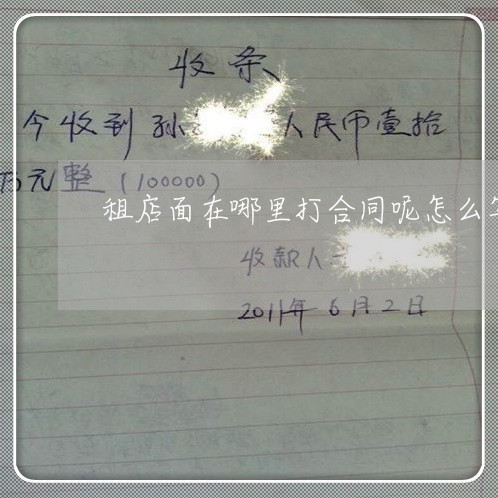 收条
今收到孙 人民币壹拾
万元整(100000)
租店面在哪里打合同呢怎么
收款人
2011年6月2日